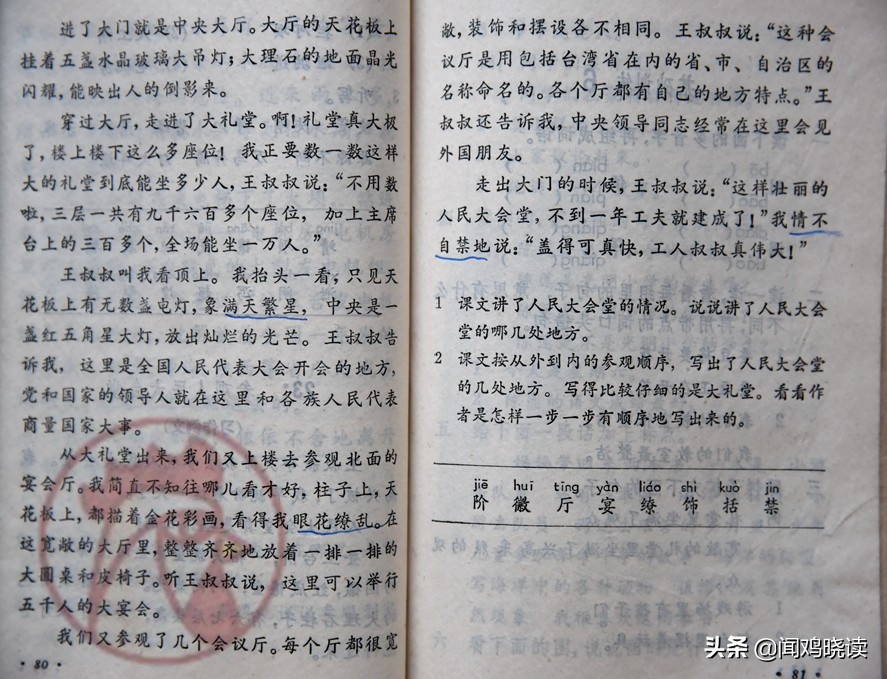 进了大门就是中央大厅。大厅的天花板上
挂着五盏水晶玻璃大吊灯；大理石的地面晶光
闪耀，能映出人的倒影来。
穿过大厅，走进了大礼堂。啊！礼堂真大极
了，楼上楼下这么多座位！我正要数一数这样
大的礼堂到底能坐多少人，王叔叔说：“不用数
啦，三层一共有九千六百多个座位，加上主席
台上的三百多个，全场能坐一万人。”
王叔叔叫我看顶上。我抬头一看，只见天
花板上有无数盏电灯，象满天繁星，中央是一
盏红五角星大灯，放出灿烂的光芒。王叔叔告
诉我，这里是全国人民代表大会开会的地方，
党和国家的领导人就在这里和各族人民代表
商量国家大事。
从大礼堂出来，我们又上楼去参观北面的
宴会厅。我简直不知往哪儿看才好，柱子上，天
花板上，都描着金花彩画，看得我眼花缭乱。在
这宽敞的大厅里，整整齐齐地放着一排一排的
大圆桌和皮椅子。听王叔叔说，这里可以举行
五千人的大宴会。
我们又参观了几个会议厅。每个厅都很宽
·80·
敞，装饰和摆设各不相同。王叔叔说：“这种会
议厅是用包括台湾省在内的省、市、自治区的
名称命名的。各个厅都有自己的地方特点。”王
叔叔还告诉我，中央领导同志经常在这里会见
外国朋友。
走出大门的时候，王叔叔说：“这样壮丽的
人民大会堂，不到一年工夫就建成了！”我情不
自禁地说：“盖得可真快，工人叔叔真伟大！”
1 课文讲了人民大会堂的情况。说说讲了人民大会
堂的哪几处地方。
2 课文按从外到内的参观顺序，写出了人民大会堂
的几处地方。写得比较仔细的是大礼堂。看看作
者是怎样一步一步有顺序地写出来的。
jiē huī tīng yàn liáo shì kuò jīn
阶 徽 厅 宴 缭 饰 括 禁
·81·
头条 @闻鸡晓读